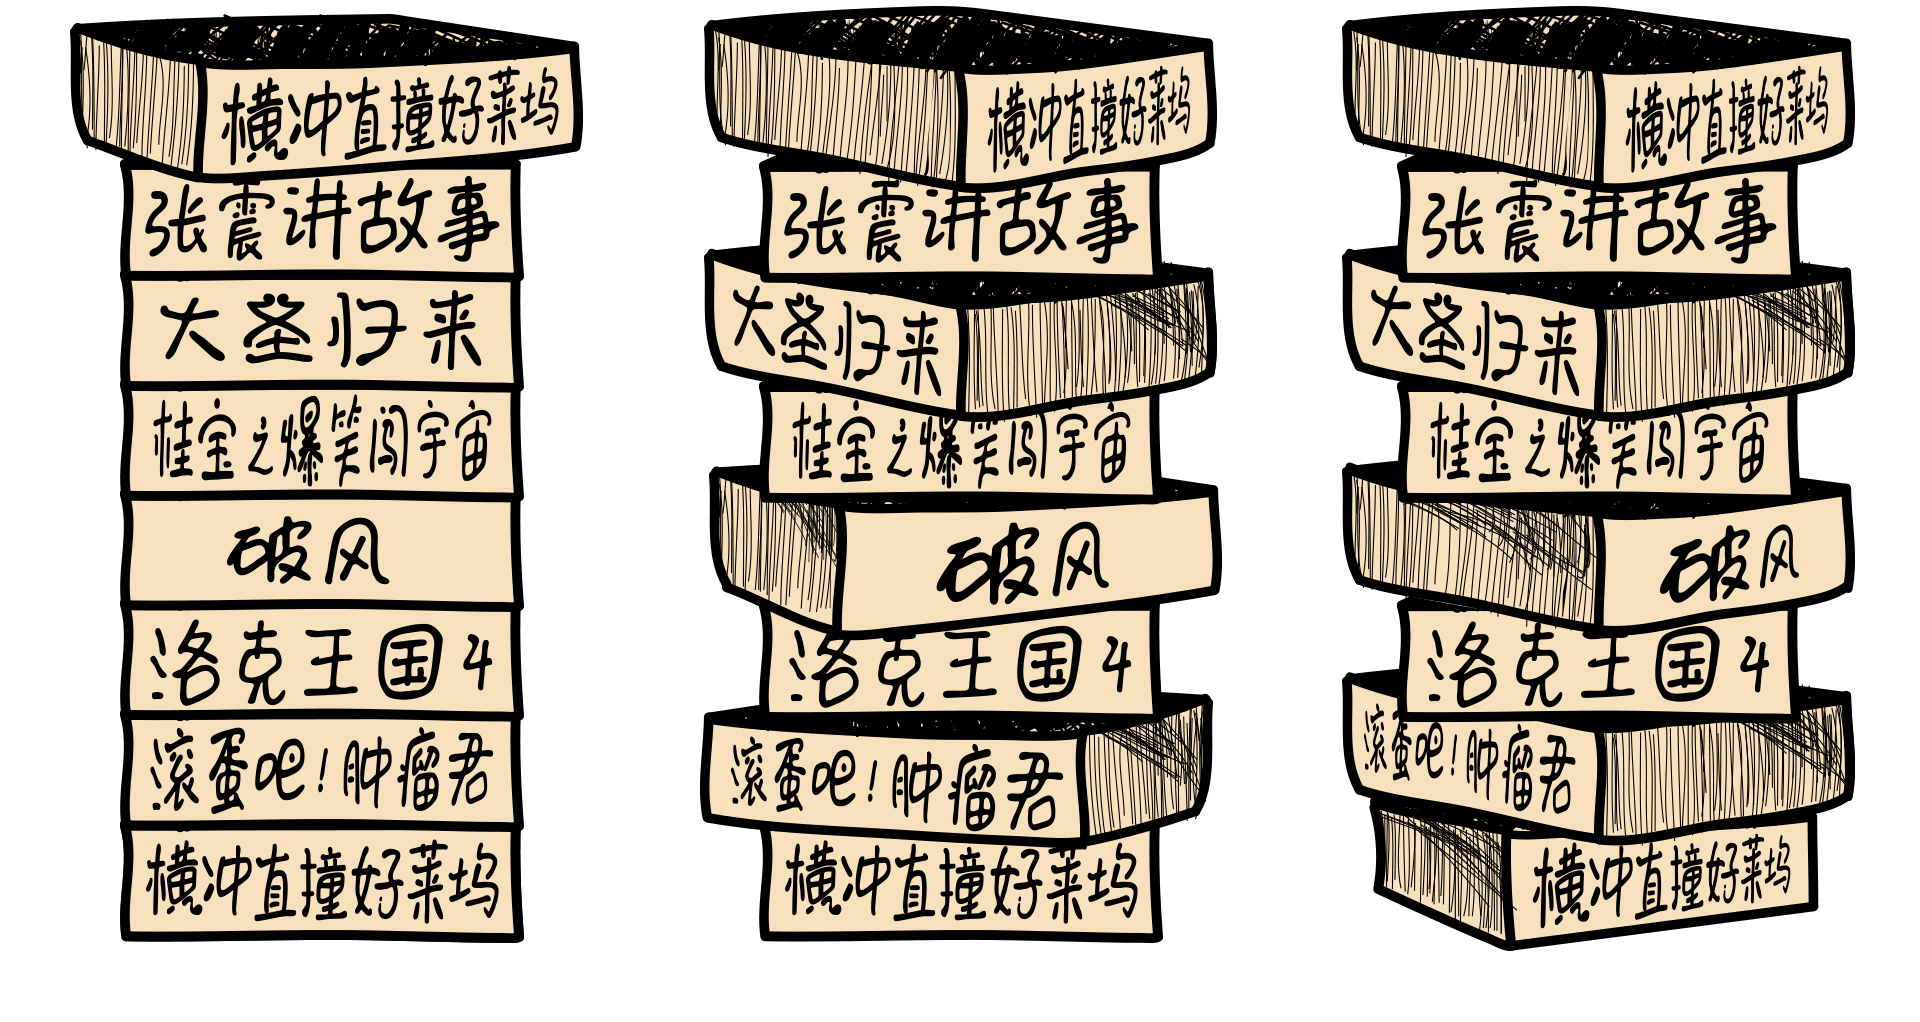 横冲直撞好莱坞
张震讲故事
大圣归来
桂宝之爆笑闯宇宙
破风
洛克王国4
滚蛋吧！肿瘤君
横冲直撞好莱坞
横冲直撞好莱坞
张震讲故事
大圣归来
桂宝之爆笑闯宇宙
破风
洛克王国4
滚蛋吧！肿瘤君
横冲直撞好莱坞
横冲直撞好莱坞
张震讲故事
大圣归来
桂宝之爆笑闯宇宙
破风
洛克王国4
滚蛋吧！肿瘤君
横冲直撞好莱坞